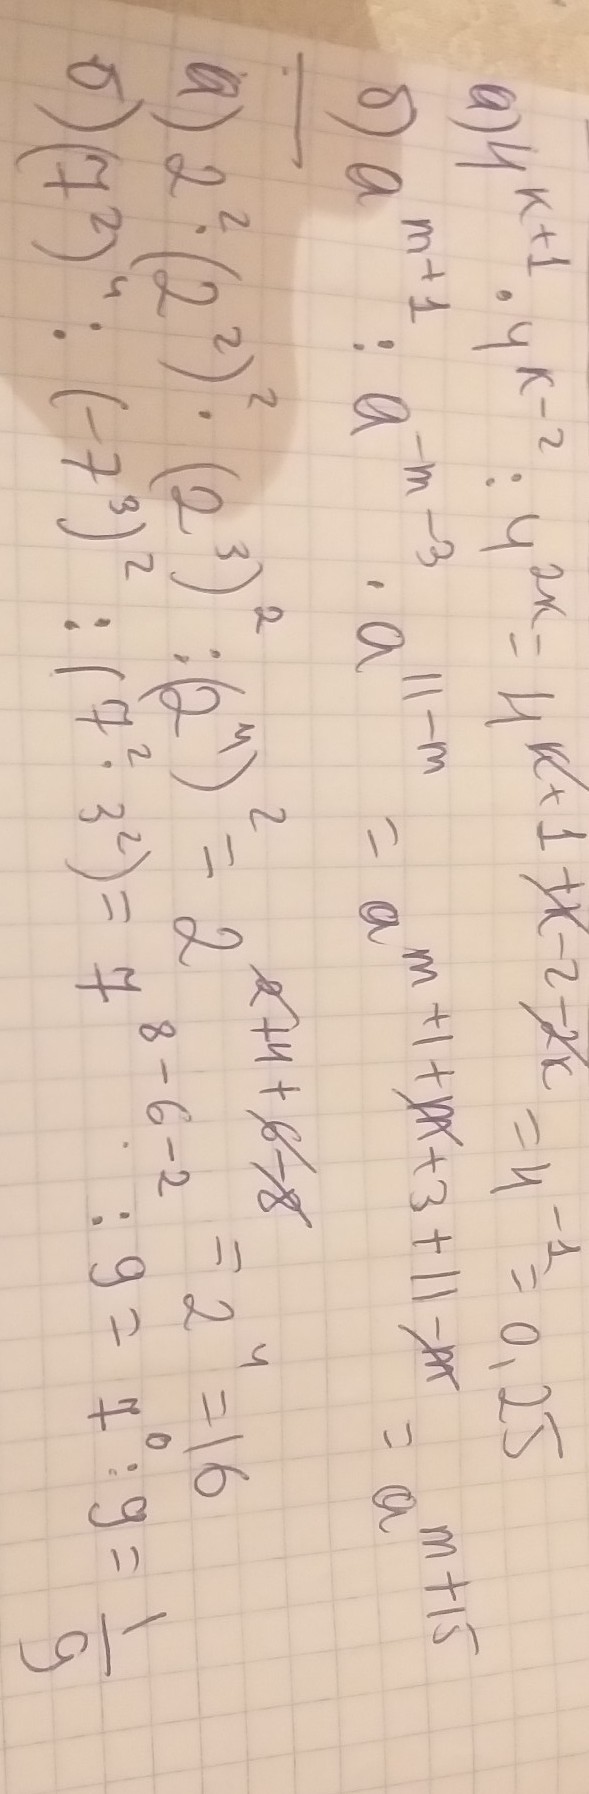 а) 4^(к+1) · 4^(к-2) : 4^(2к) = 4^(к+1+к-2-2к) = 4^(-1) = 0,25
б) a^(m+1) : a^(-m-3) · a^(11-m) = a^(m+1+m+3+11-m) = a^(m+15)
а) 2^2 · (2^2)^2 · (2^3)^2 : (2^4)^2 = 2^(2+4+6-8) = 2^4 = 16
б) (7^2)^4 : (-7^3)^2 : (7^2 · 3^2) = 7^(8-6-2) : 9 = 7^0 : 9 = 1/9